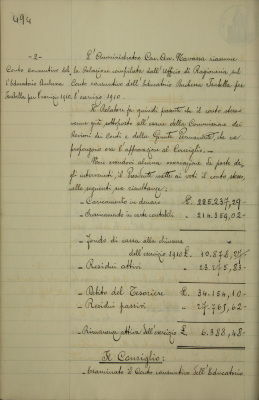 494
- 2 - L'Amministratore Cav. Avv. Navarra riassume
Conto consuntivo del la Relazione compilata dall'Ufficio di Ragioneria sul
l'Educatorio Conto consuntivo dell'Educatorio Isabella per
l'esercizio 1910.
Il Relatore fa quindi presente che il conto stesso
venne già sottoposto all'esame della Commissione dei
Revisori dei conti e della Giunta Permanente, che ne
propongono ora l'approvazione al Consiglio. -
Non essendovi alcuna osservazione da parte de
gli intervenuti, il Presidente mette ai voti il conto stesso,
nelle seguenti sue risultanze:
- Caricamento in denaro £. 225.237,29.-
- Scaricamento in conto contabili " 214.359,02-
- Fondo di cassa alla chiusura
dell'esercizio 1910 £- 10.878,27-
- Residui attivi " 23.275,83-
£. 34.154,10.-
- Residui passivi " 27.765,62-
- Rimanenza attiva dell'esercizio £. 6.388,48-
Il Consiglio:
- Esaminato il Conto consuntivo dell'Educatorio